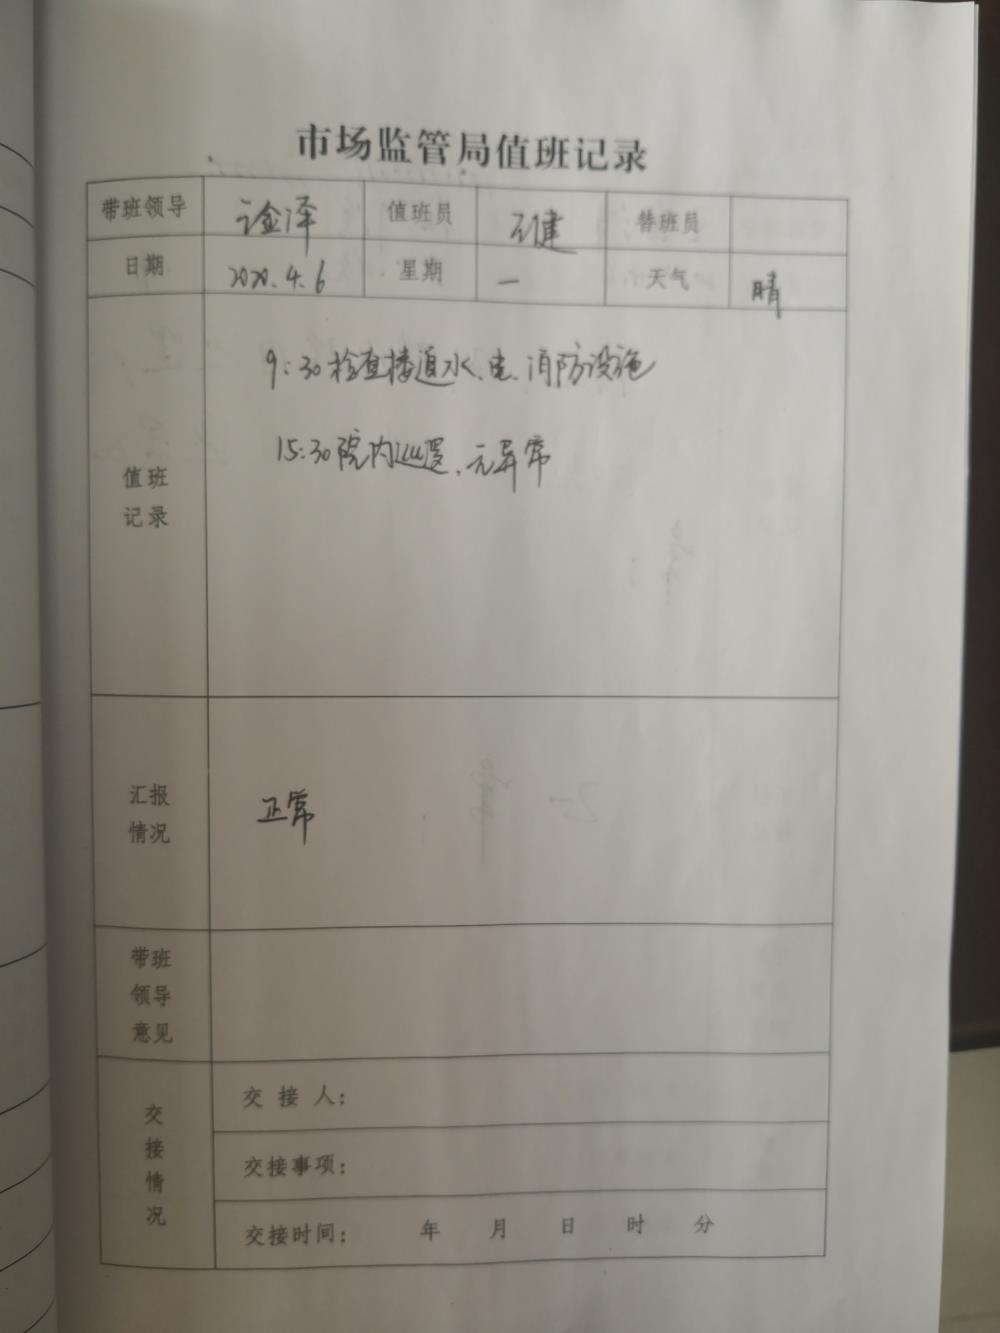 市场监管局值班记录
带班领导 金泽 值班员 石健 替班员
日期 2020.4.6 星期 一 天气 晴
9:30检查楼道水、电、消防设施
15:30院内巡逻、无异常
值班
记录
汇报
情况
正常
带班
领导
意见
交接情况
交接人:
交接事项:
交接时间: 年 月 日 时 分